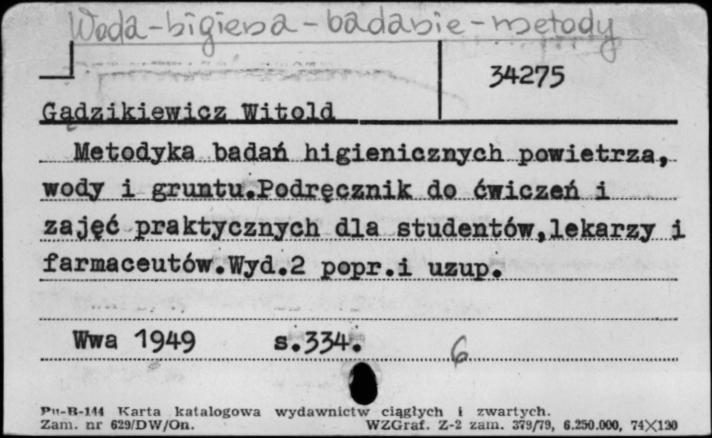 Woda - higiena - badanie - metody
34275
Gądzikiewicz Witold
Metodyka badań higienicznych powietrza,
wody i gruntu.Podręcznik do ćwiczeń i
zajęć praktycznych dla studentów,lekarzy i
farmaceutów.Wyd.2 popr.i uzup.
Wwa 1949 s.334.
6
Pu-B-144 Karta katalogowa wydawnictw ciągłych i zwartych.
Zam. nr 629/DW/On. WZGraf. Z-2 zam. 379/79, 6.250.000, 74X120